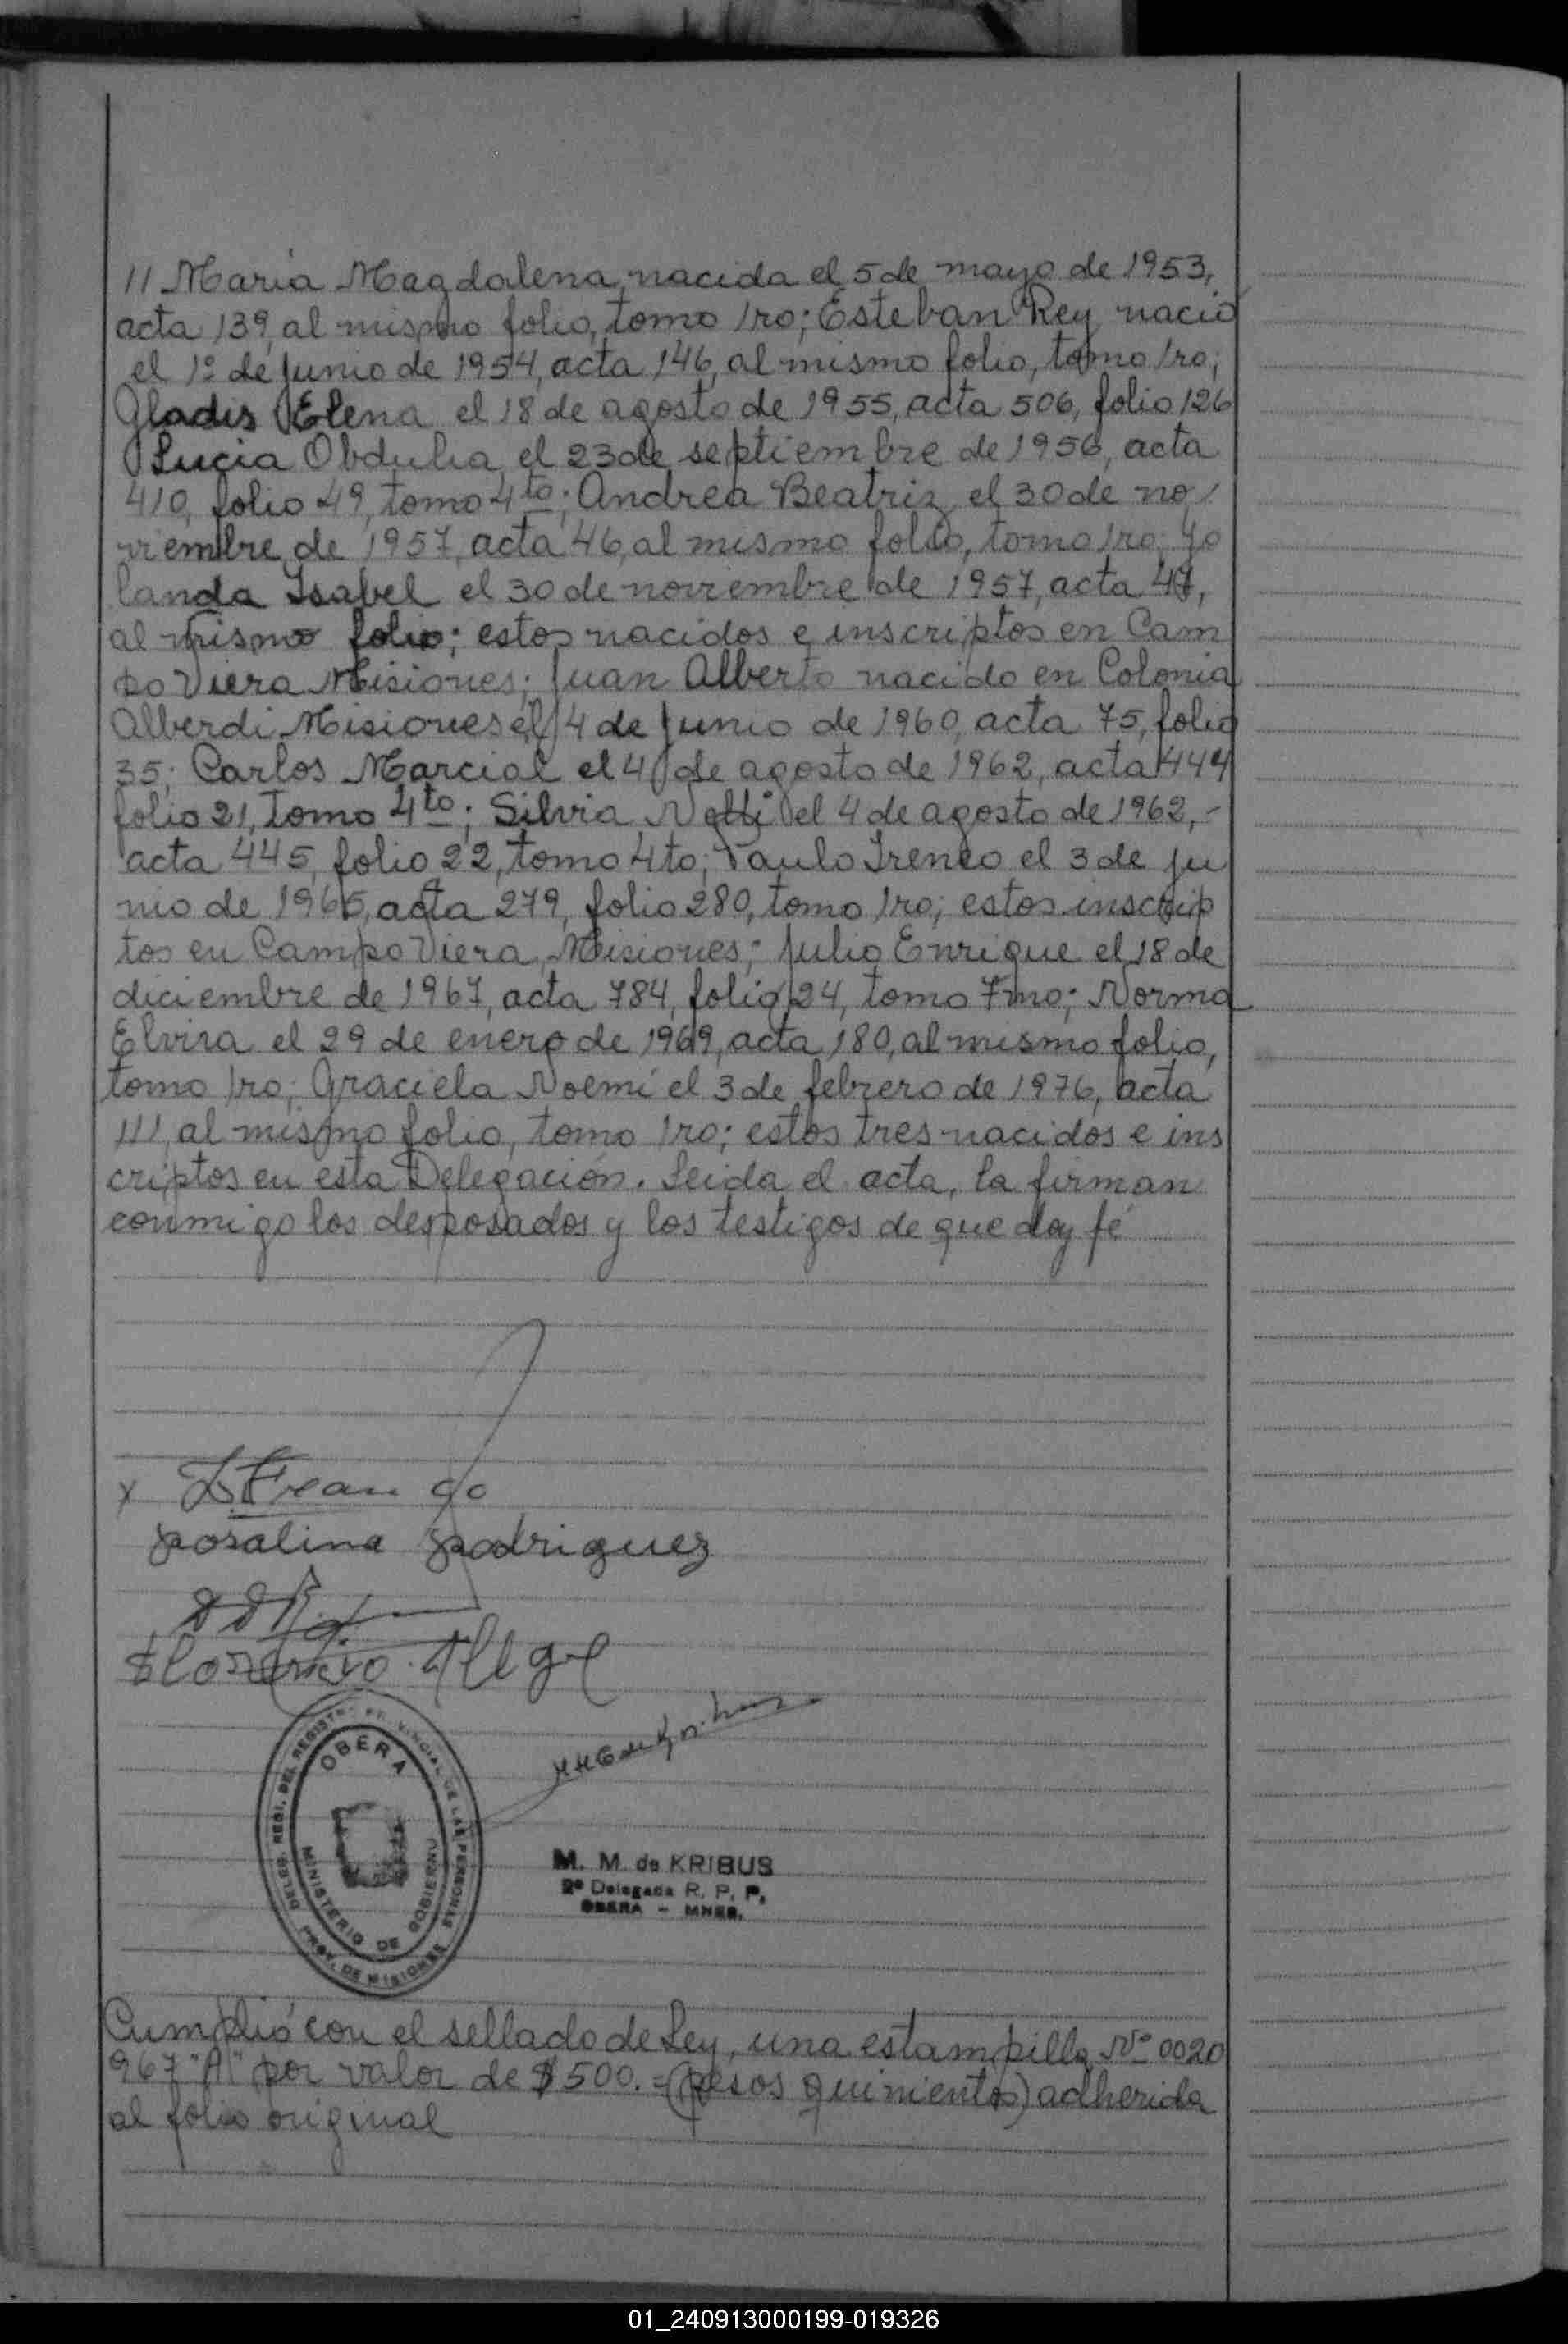 11 María Magdalena, nacida el 5 de mayo de 1953,
acta 139, al mismo folio, tomo 1ro; Esteban Rey, nació
el 1º de junio de 1954, acta 146, al mismo folio, tomo 1ro;
Gladis Elena el 18 de agosto de 1955, acta 506, folio 126
Lucia Obdulia el 23 de septiembre de 1956, acta
410, folio 49, tomo 4to; Andrea Beatriz el 30 de no
viembre de 1957, acta 46, al mismo folio, tomo 1ro; Yo
landa Isabel el 30 de noviembre de 1957, acta 47,
al mismo folio; estos nacidos e inscriptos en Cam
po Viera Misiones; Juan Alberto nacido en Colonia
Alberdi Misiones el 14 de junio de 1960, acta 75, folio
35; Carlos Marcial el 4 de agosto de 1962, acta 444
folio 21, tomo 4to; Silvia Nelli el 4 de agosto de 1962,-
acta 445, folio 22, tomo 4to; Paulo Ireneo el 3 de ju
nio de 1965, acta 279, folio 280, tomo 1ro; estos inscrip
tos en Campo Viera, Misiones; Julio Enrique el 18 de
diciembre de 1967, acta 784, folio 24, tomo 7mo; Norma
Elvira el 29 de enero de 1969, acta 180, al mismo folio,
tomo 1ro; Graciela Noemí el 3 de febrero de 1976, acta
111, al mismo folio, tomo 1ro; estos tres nacidos e ins
criptos en esta Delegación. Leida el acta, la firman
conmigo los desposados y los testigos de que doy fé
x
Rosalina Rodriguez
OBERA
DELEG. REGI. DEL REGISTRO PROVINCIAL DE LAS PERSONAS
MINISTERIO DE GOBIERNO
PROV. DE MISIONES
M. M. de KRIBUS
2º Delegada R. P. P.
OBERA - MNES.
Cumplió con el sellado de Ley, una estampilla Nº 0020
967 "A" por valor de $ 500.= (pesos quinientos) adherida
al folio original
01_240913000199-019326